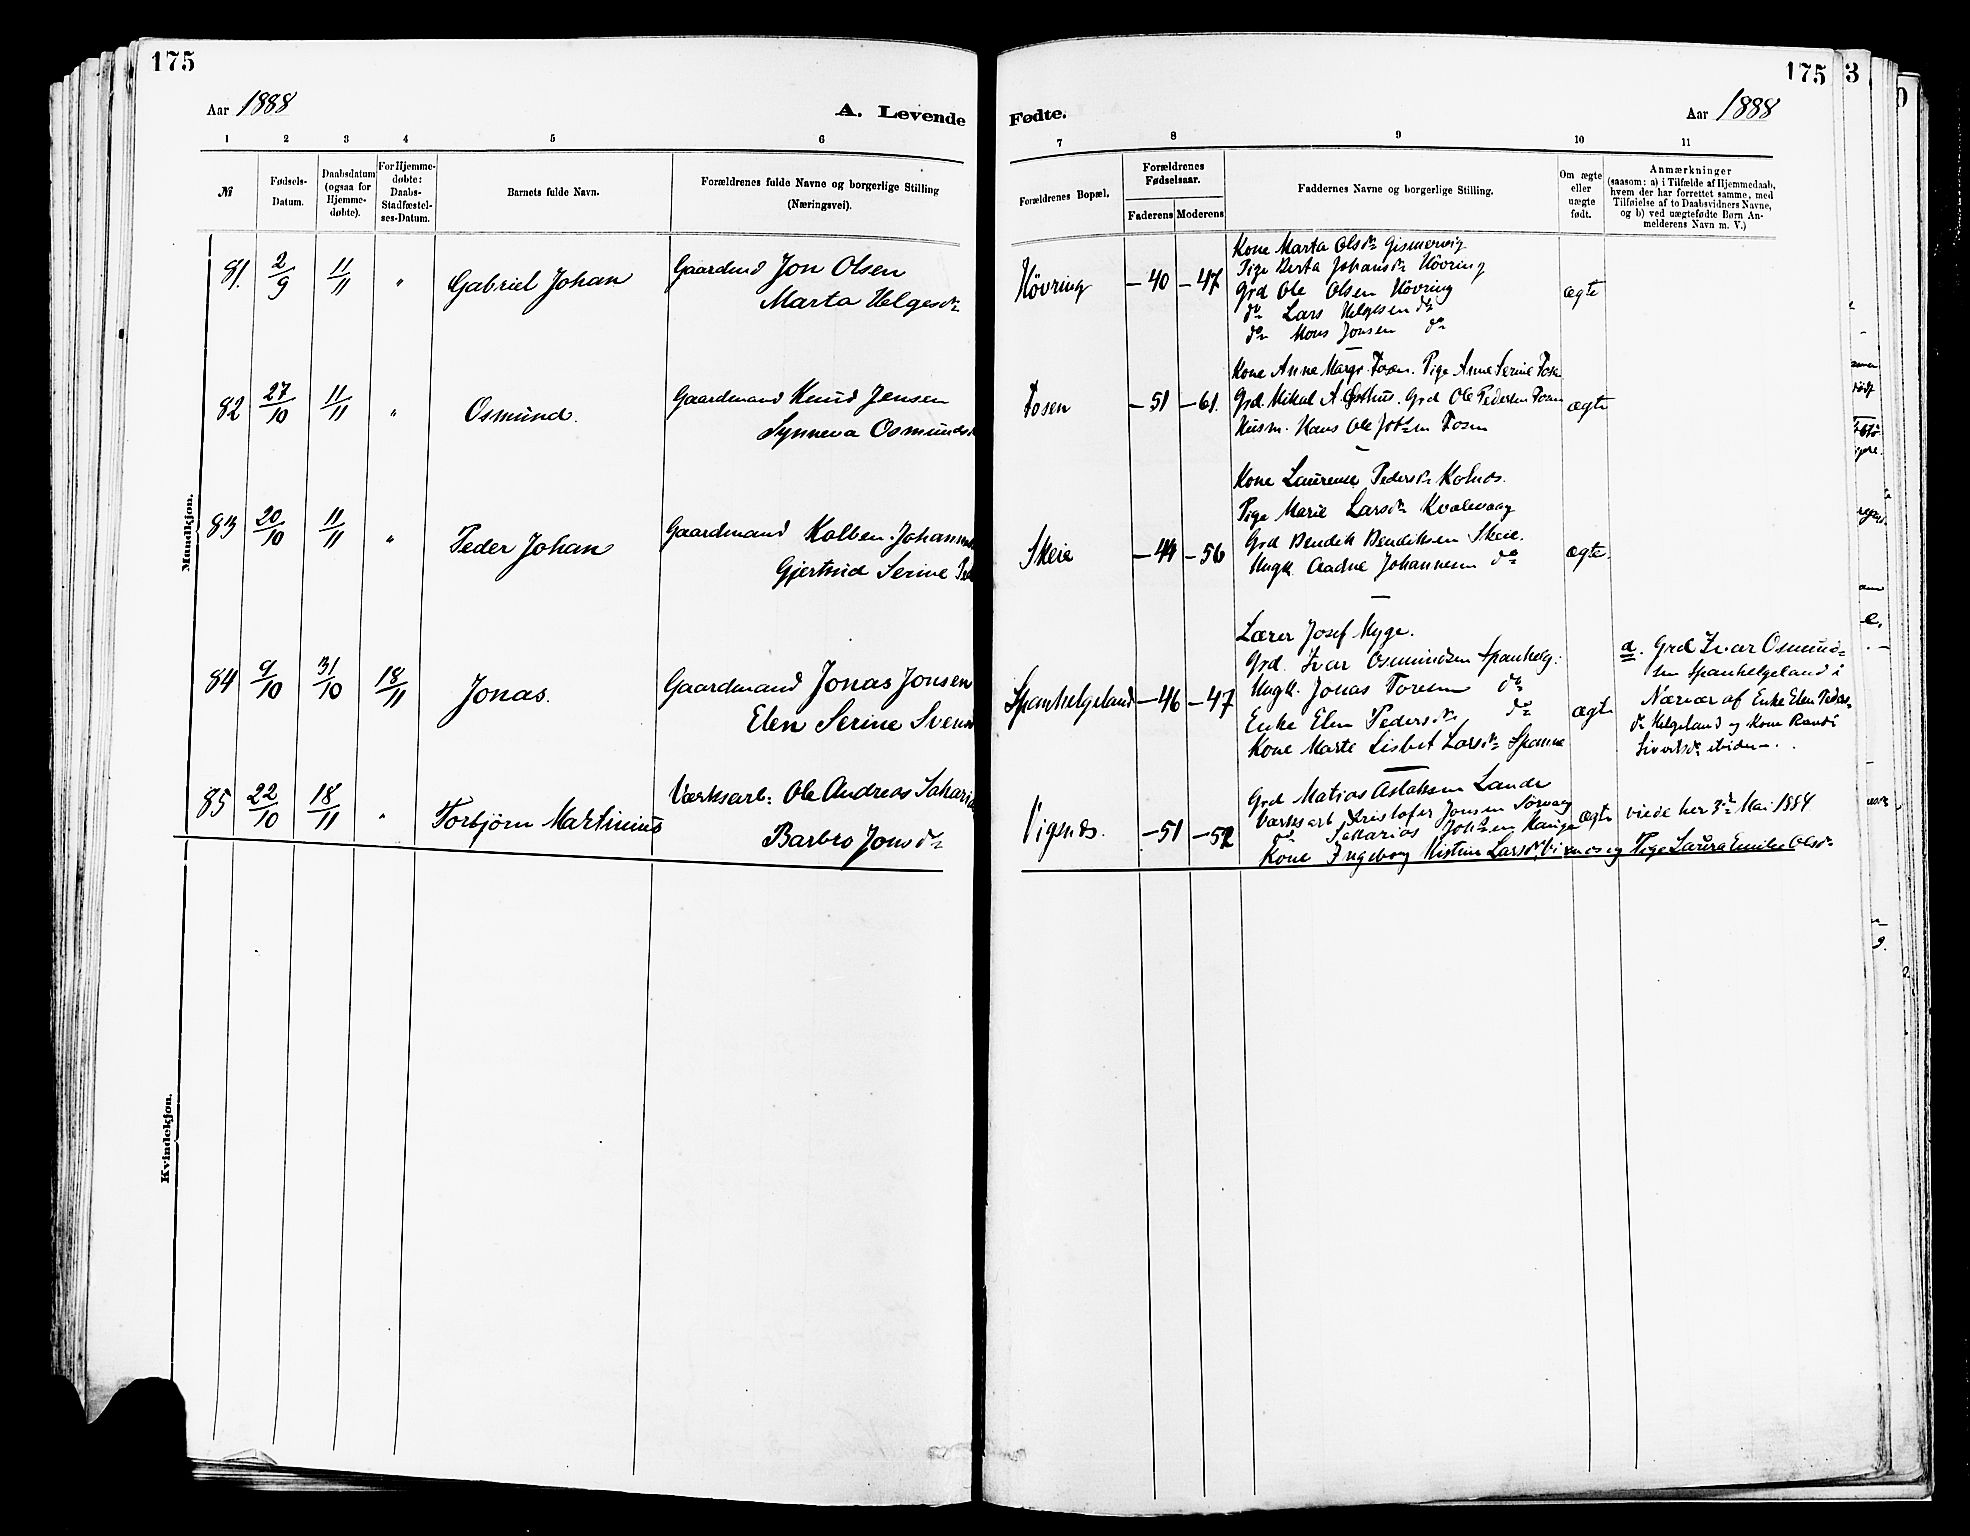 175
Aar 1888
A. Levende
1 2 3 4 5 6
№
Fødsels-
Datum.
Daabsdatum
(ogsaa for
Hjemme-
døbte).
For Hjemme-
døbte:
Daabs-
Stadfæstel-
ses-Datum.
Barnets fulde Navn.
Forældrenes fulde Navne og borgerlige Stilling
(Næringsvei).
Mandkjøn.
81. 2/9 11/11 " Gabriel Johan
Gaardmd Jon Olsen
Marta Helgesdr
82 27/10 11/11 " Osmund.
Gaardmand Knud Jensen
Synneva Osmunds
83 20/10 11/11 " Peder Johan
Gaardmand Kolben Johannes
Gjertrud Serine Ped
84 9/10 31/10 18/11 Jonas.
Gaardmand Jonas Jonsen
Elen Serine Svens
85 22/10 18/11 " Torbjørn Martinius
Værksarb: Ole Andreas Sakaria
Barbro Jonsdr
Kvindekjøn.
175
Fødte.
Aar 1888
7 8 9 10 11
Forældrenes Bopæl.
Forældrenes
Fødselsaar.
Faderens Moderens
Faddernes Navne og borgerlige Stilling.
Om ægte
eller
uægte
født.
Anmærkninger
(saasom: a) i Tilfælde af Hjemmedaab,
hvem der har forrettet samme, med
Tilføielse af to Daabsvidners Navne,
og b) ved uægtefødte Børn An-
melderens Navn m. V.)
Høvring – 40 – 47
Kone Marta Olsdr Gismervig
Pige Berta Johansdr Høvring
Grd Ole Olsen Høvring
do Lars Helgesen do
do Mons Jonsen do
ægte
Fosen – 51 – 61.
Kone Anne Margr. Fosen. Pige Anne Serine Fosen
Grd. Mikal A. Østhus. Grd Ole Pedersen Fosen
Husm. Hans Ole Johsen Fosen
ægte
Skeie – 44 – 56
Kone Laurense Pedersdr Kolnes.
Pige Marie Larsdr Kvalevaag
Grd Bendik Bendiksen Skeie.
Ungk. Aadne Johannesen do
ægte.
Spanhelgeland – 46 – 47
Lærer Josef Myge.
Grd. Ivar Osmundsen Spanhelg.
Ungk. Jonas Toresen do
Enke Elen Pedersdr do
Kone Marte Lisbet Larsdr Spanne
ægte
a. Grd Ivar Osmund-
sen Spanhelgeland i
Nærvær af Enke Elen Peders-
dr Helgeland og Kone Randi
Sivertsdr ibidem.
Vigsnes. – 51 – 52
Grd Matias Aslaksen Lande
Værksarb Kristofer Jonsen Sørvaag
do Sakarias Johsen Hauge
Kone Ingeborg Kistine Larsdr Visnes og Pige Laura Emilie Olsdr
ægte
viede her 3die Mai 1884
3